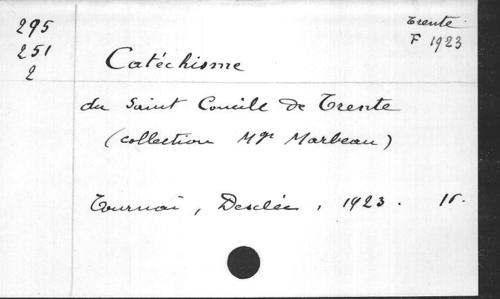 295
251
2
Trente
F 1923
Catéchisme
du Saint Concile de Trente
(collection Mgr Marbeau)
Tournai, Desclée, 1923.